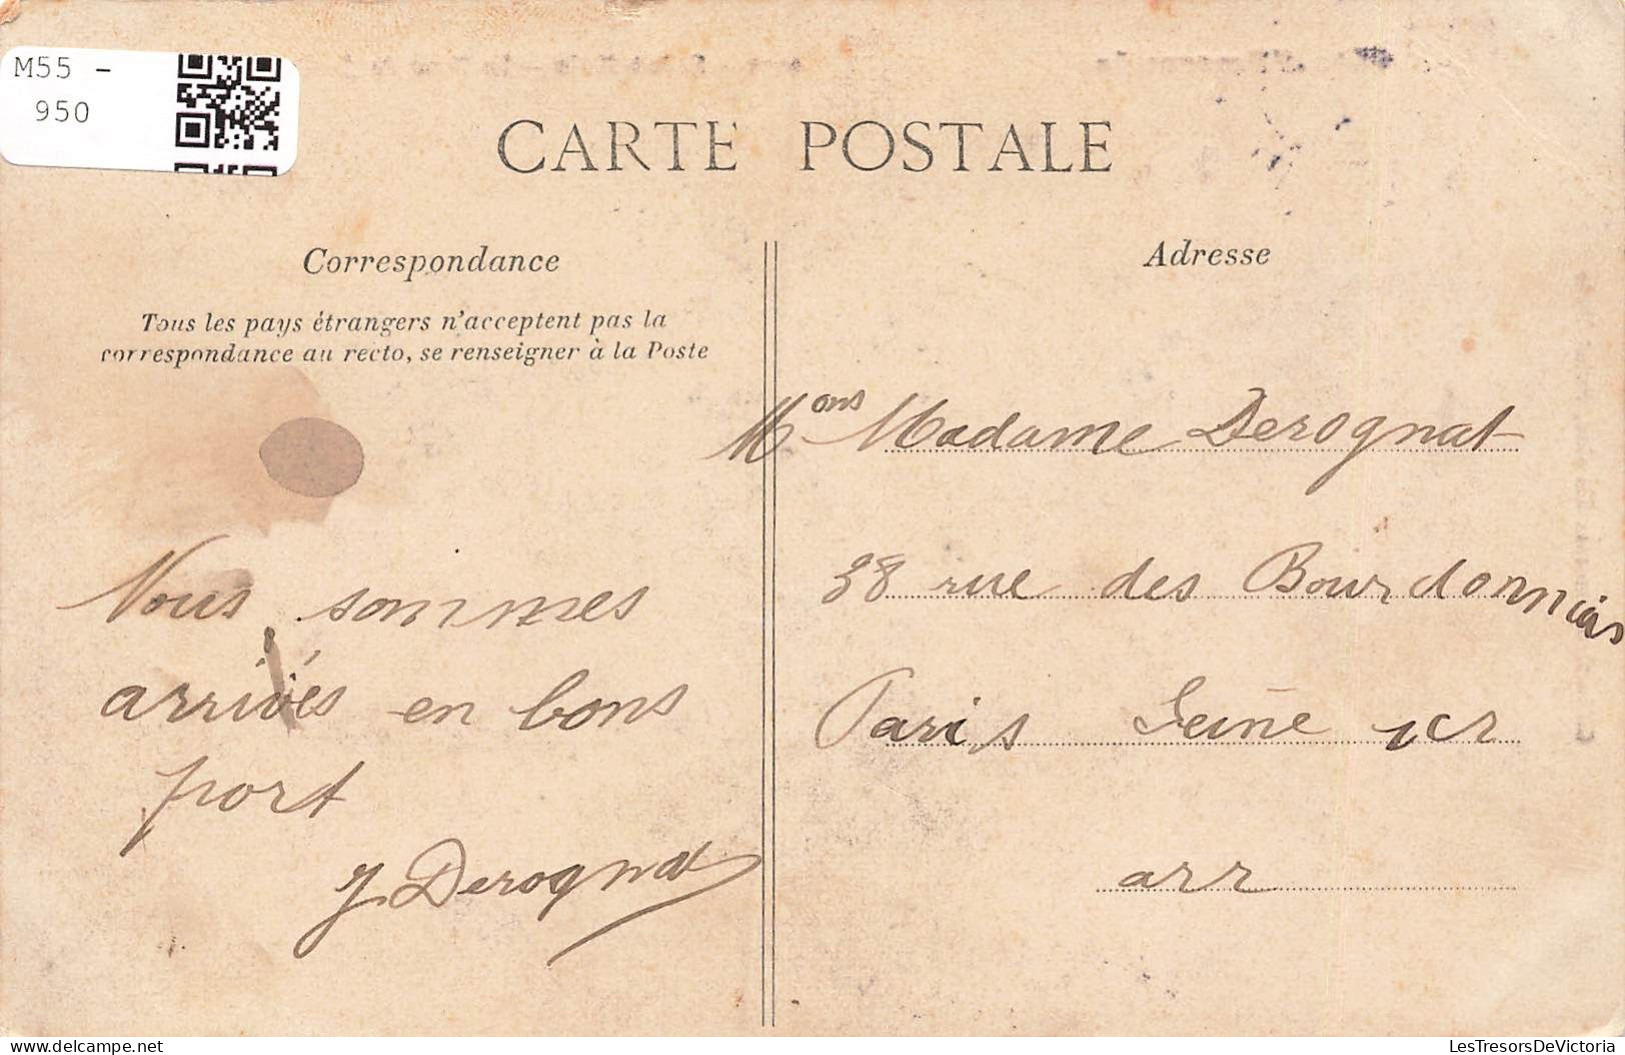 M55 -
950
CARTE POSTALE
Correspondance
Tous les pays étrangers n'acceptent pas la
correspondance au recto, se renseigner à la Poste
Adresse
Mons Madame Derognat
38 rue des Bourdonnais
Paris Seine 1er
arr
Nous sommes
arrivés en bons
port
J. Derognat
delcampe.net
LesTresorsDeVictoria